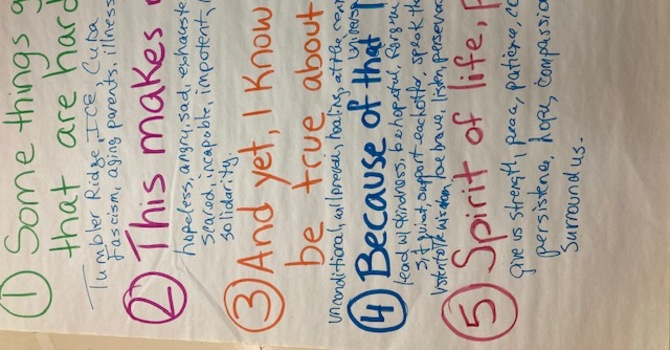 ① Some things
that are hard
Tumbler Ridge, ICE, Cuba
fascism, aging parents, illness
② This makes
hopeless, angry, sad, exhausted
scared, incapable, impotent,
solidarity.
③ And yet, I know
be true about
unconditional, will prevail, healing, at the
④ Because of that
lead w/ kindness, be hopeful,
sit quiet, support each other, speak
listen to the wisdom we have, listen,
⑤ Spirit of life,
give us strength, peace, patience,
persistence, hope, compassion
surround us.